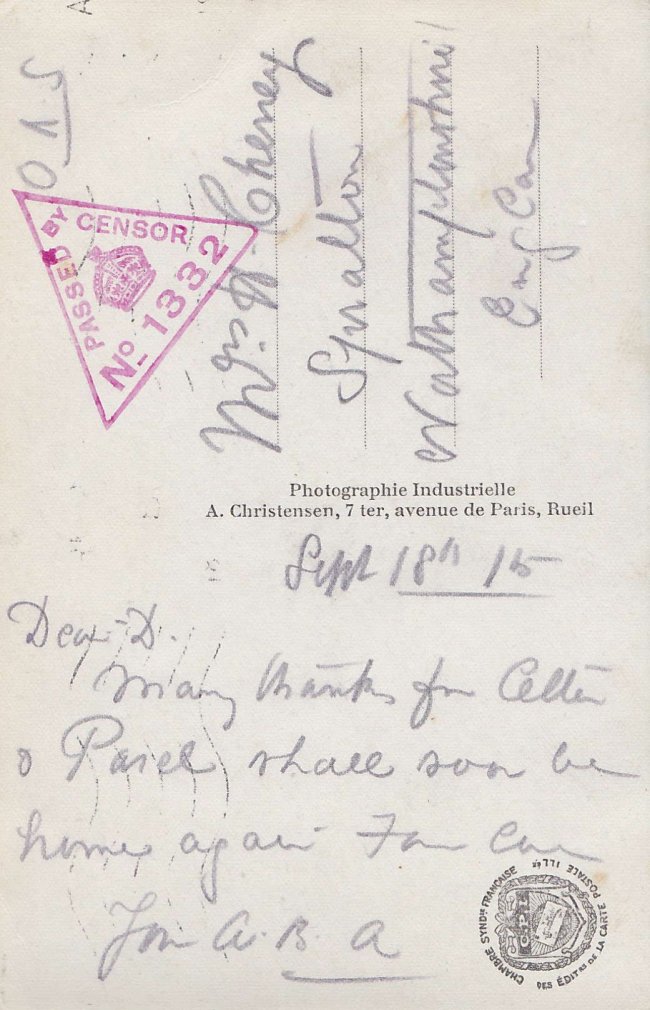 O A S
PASSED BY CENSOR
No 1332
Mrs H. Cheney
Spratton
Northamptonshire
England
Photographie Industrielle
A. Christensen, 7 ter, avenue de Paris, Rueil
Sept 18th 15
Dear D.
Many thanks for letter
& Parcel shall soon be
home again
A. B. A
CHAMBRE SYNDle FRANÇAISE
DES ÉDITRS DE LA CARTE POSTALE ILLée